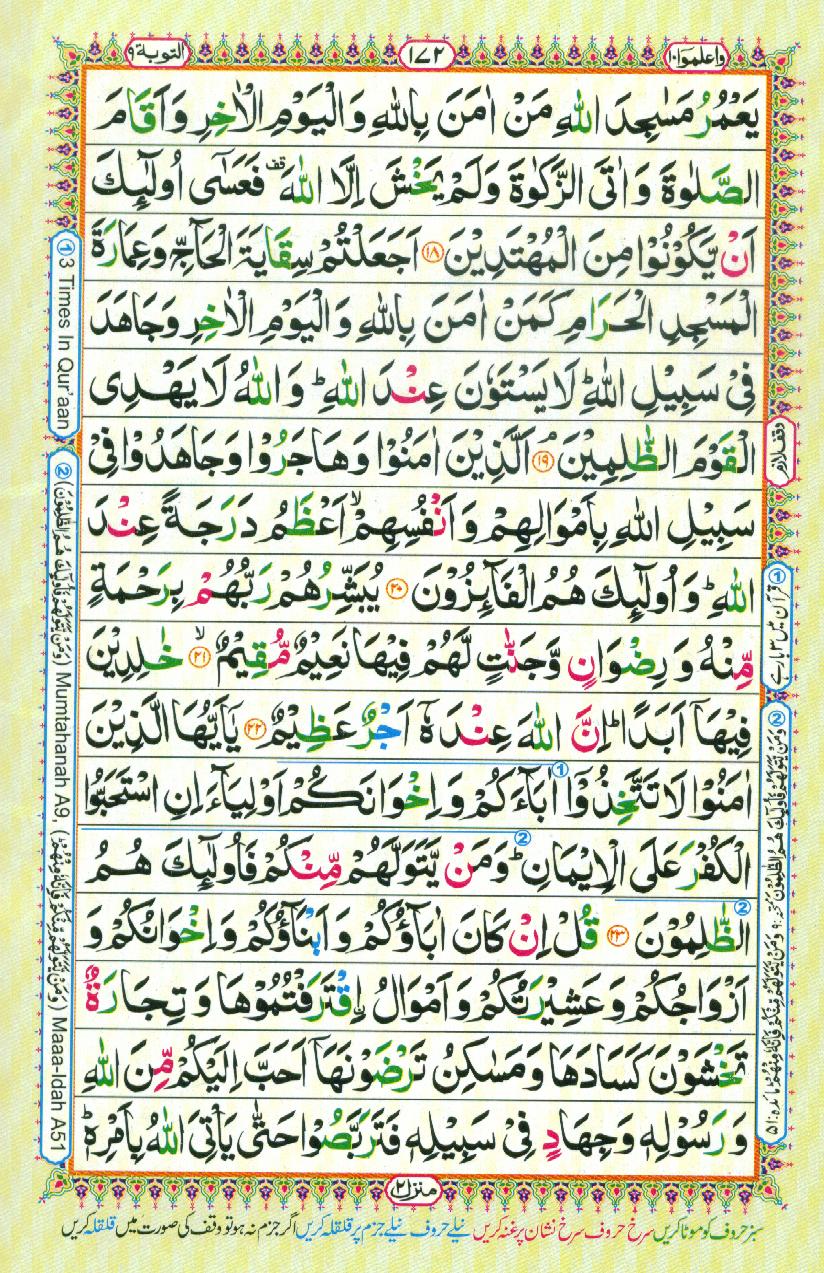 واعلموا ١٠
١٧٢
التوبة ٩
يَعْمُرُ مَسٰجِدَ اللّٰهِ مَنْ اٰمَنَ بِاللّٰهِ وَالْيَوْمِ الْاٰخِرِ وَاَقَامَ
الصَّلٰوةَ وَاٰتَى الزَّكٰوةَ وَلَمْ يَخْشَ اِلَّا اللّٰهَ قف فَعَسٰٓى اُولٰٓئِكَ
اَنْ يَّكُوْنُوْا مِنَ الْمُهْتَدِيْنَ ١٨ اَجَعَلْتُمْ سِقَايَةَ الْحَآجِّ وَعِمَارَةَ
الْمَسْجِدِ الْحَرَامِ كَمَنْ اٰمَنَ بِاللّٰهِ وَالْيَوْمِ الْاٰخِرِ وَجَاهَدَ
فِيْ سَبِيْلِ اللّٰهِ ؕ لَا يَسْتَوٗنَ عِنْدَ اللّٰهِ ؕ وَاللّٰهُ لَا يَهْدِى
الْقَوْمَ الظّٰلِمِيْنَ ١٩ۘ اَلَّذِيْنَ اٰمَنُوْا وَهَاجَرُوْا وَجَاهَدُوْا فِيْ
سَبِيْلِ اللّٰهِ بِاَمْوَالِهِمْ وَاَنْفُسِهِمْ ۙ اَعْظَمُ دَرَجَةً عِنْدَ
اللّٰهِ ؕ وَاُولٰٓئِكَ هُمُ الْفَآئِزُوْنَ ٢٠ يُبَشِّرُهُمْ رَبُّهُمْ بِرَحْمَةٍ
مِّنْهُ وَرِضْوَانٍ وَّجَنّٰتٍ لَّهُمْ فِيْهَا نَعِيْمٌ مُّقِيْمٌ ٢١ۙ خٰلِدِيْنَ
فِيْهَآ اَبَدًا ؕ اِنَّ اللّٰهَ عِنْدَهٗٓ اَجْرٌ عَظِيْمٌ ٢٢ يٰٓاَيُّهَا الَّذِيْنَ
اٰمَنُوْا لَا تَتَّخِذُوْٓا اٰبَآءَكُمْ وَاِخْوَانَكُمْ اَوْلِيَآءَ اِنِ اسْتَحَبُّوا
الْكُفْرَ عَلَى الْاِيْمَانِ ؕ وَمَنْ يَّتَوَلَّهُمْ مِّنْكُمْ فَاُولٰٓئِكَ هُمُ
الظّٰلِمُوْنَ ٢٣ قُلْ اِنْ كَانَ اٰبَآؤُكُمْ وَاَبْنَآؤُكُمْ وَاِخْوَانُكُمْ وَ
اَزْوَاجُكُمْ وَعَشِيْرَتُكُمْ وَاَمْوَالُ اۨقْتَرَفْتُمُوْهَا وَتِجَارَةٌ
تَخْشَوْنَ كَسَادَهَا وَمَسٰكِنُ تَرْضَوْنَهَآ اَحَبَّ اِلَيْكُمْ مِّنَ اللّٰهِ
وَرَسُوْلِهٖ وَجِهَادٍ فِيْ سَبِيْلِهٖ فَتَرَبَّصُوْا حَتّٰى يَاْتِيَ اللّٰهُ بِاَمْرِهٖ ؕ
منزل ٢
سبز حروف کو موٹا کریں سرخ حروف سرخ نشان پر غنہ کریں نیلے حروف نیلے جزم پر قلقلہ کریں اگر جزم نہ ہو تو وقف کی صورت میں قلقلہ کریں
① 3 Times In Qur'aan
② (وَمَنْ يَّتَوَلَّهُمْ فَاُولٰٓئِكَ هُمُ الظّٰلِمُوْنَ) Mumtahanah A9 (وَمَنْ يَّتَوَلَّهُمْ مِّنْكُمْ فَاِنَّهٗ مِنْهُمْ) Maaa-Idah A51
وقف لازم
① قرآن میں ٣ بار ہے